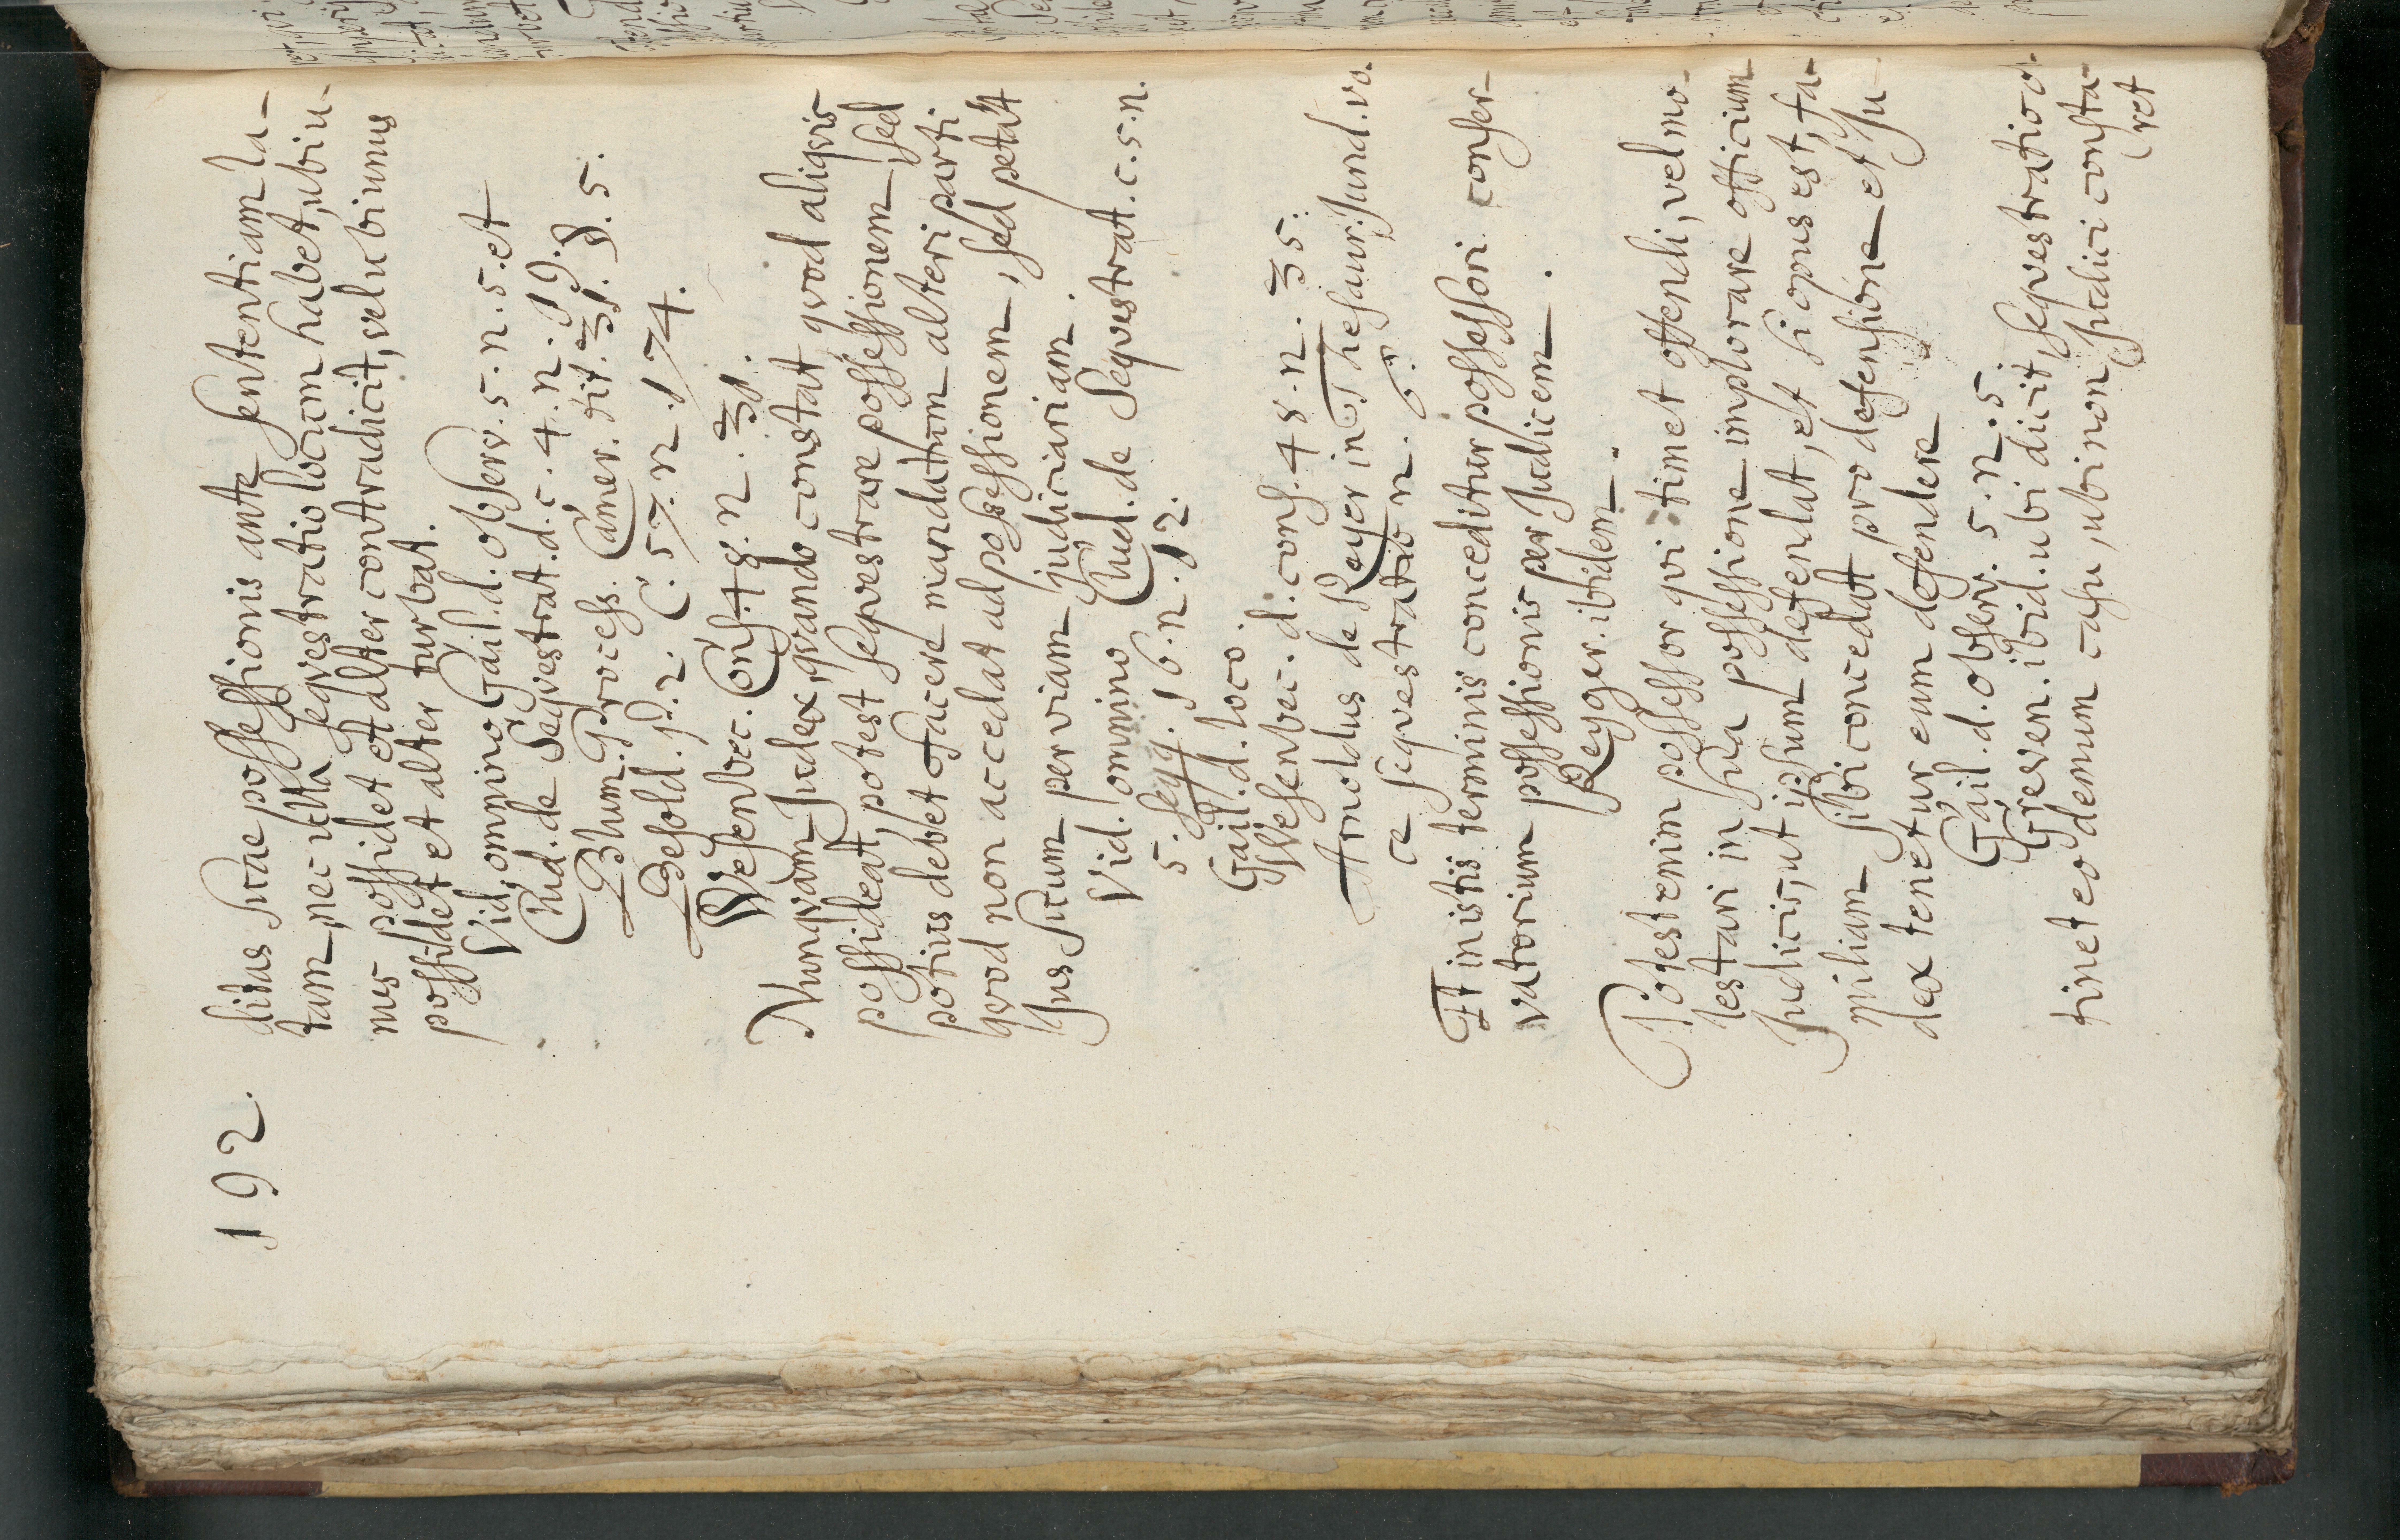 192.
ditus suae possessionis ante sententiam la-
tam, nec ulla sequestratio locum habet, ubi u-
nus possidet et alter contradicit, vel ubi unus
possidet et alter turbat.
Vid. omnino Gail. d. observ. 5. n. 5. et
Chud. de Sequestrat. d. c. 4. n. 19.
Blum. Process. Camer. tit. 31. §. 5.
Besold. p. 2. C. 57. n. 174.
Wesenbec. Cons. 48. n. 31.
Nunqvam Judex, qvando constat qvod aliqvis
possideat, potest seqvestrare possessionem, sed
potius debet facere mandatum alteri parti
qvod non accedat ad possessionem, sed petat
jus suum per viam judiciariam.
Vid. omnino Chud. de Seqvestrat. c. 5. n.
5. seqq. 16. n. 12.
Gail. d. loco.
Wesenbec. d. cons. 48. n. 35.
Arnoldus de Reyer in Thesaur: Jur. d. vo.
ce seqvestratio n. 6.
Et in istis terminis conceditur possessori conser-
vatorium possessionis per Judicem.
Reyger. ibidem.
Potest enim possessor qvi timet offendi, vel mo-
lestari in sua possessione implorare officium
Judicis, ut ipsum defendat, et si opus est, fa-
miliam sibi concedat pro defensione et Ju-
dex tenetur eum defendere
Gail. d. observ. 5. n. 5.
Greven. ibid. ubi dicit, seqvestratio o-
tinet eo demum casu, ubi non Judici consta-
ret